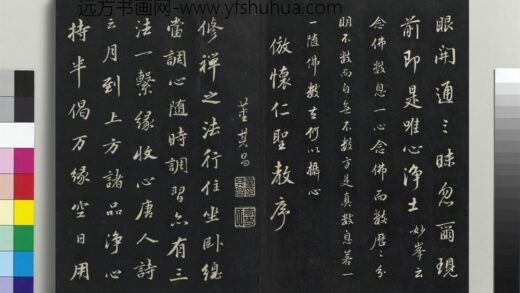 远方书画网 www.yfshuhua.com
眼開通三昧忽爾現
前即是唯心淨土 妙峯云
念佛數息一心念佛而數歷〻分
明不數而自無不數方是真數息若一
一随佛數去何以攝心
倣懷仁聖教序
董其昌
修禪之法行住坐卧總
當調心随時調習亦有三
法一繫緣收心唐人詩
云月到上方諸品淨心
持半偈万緣空日用